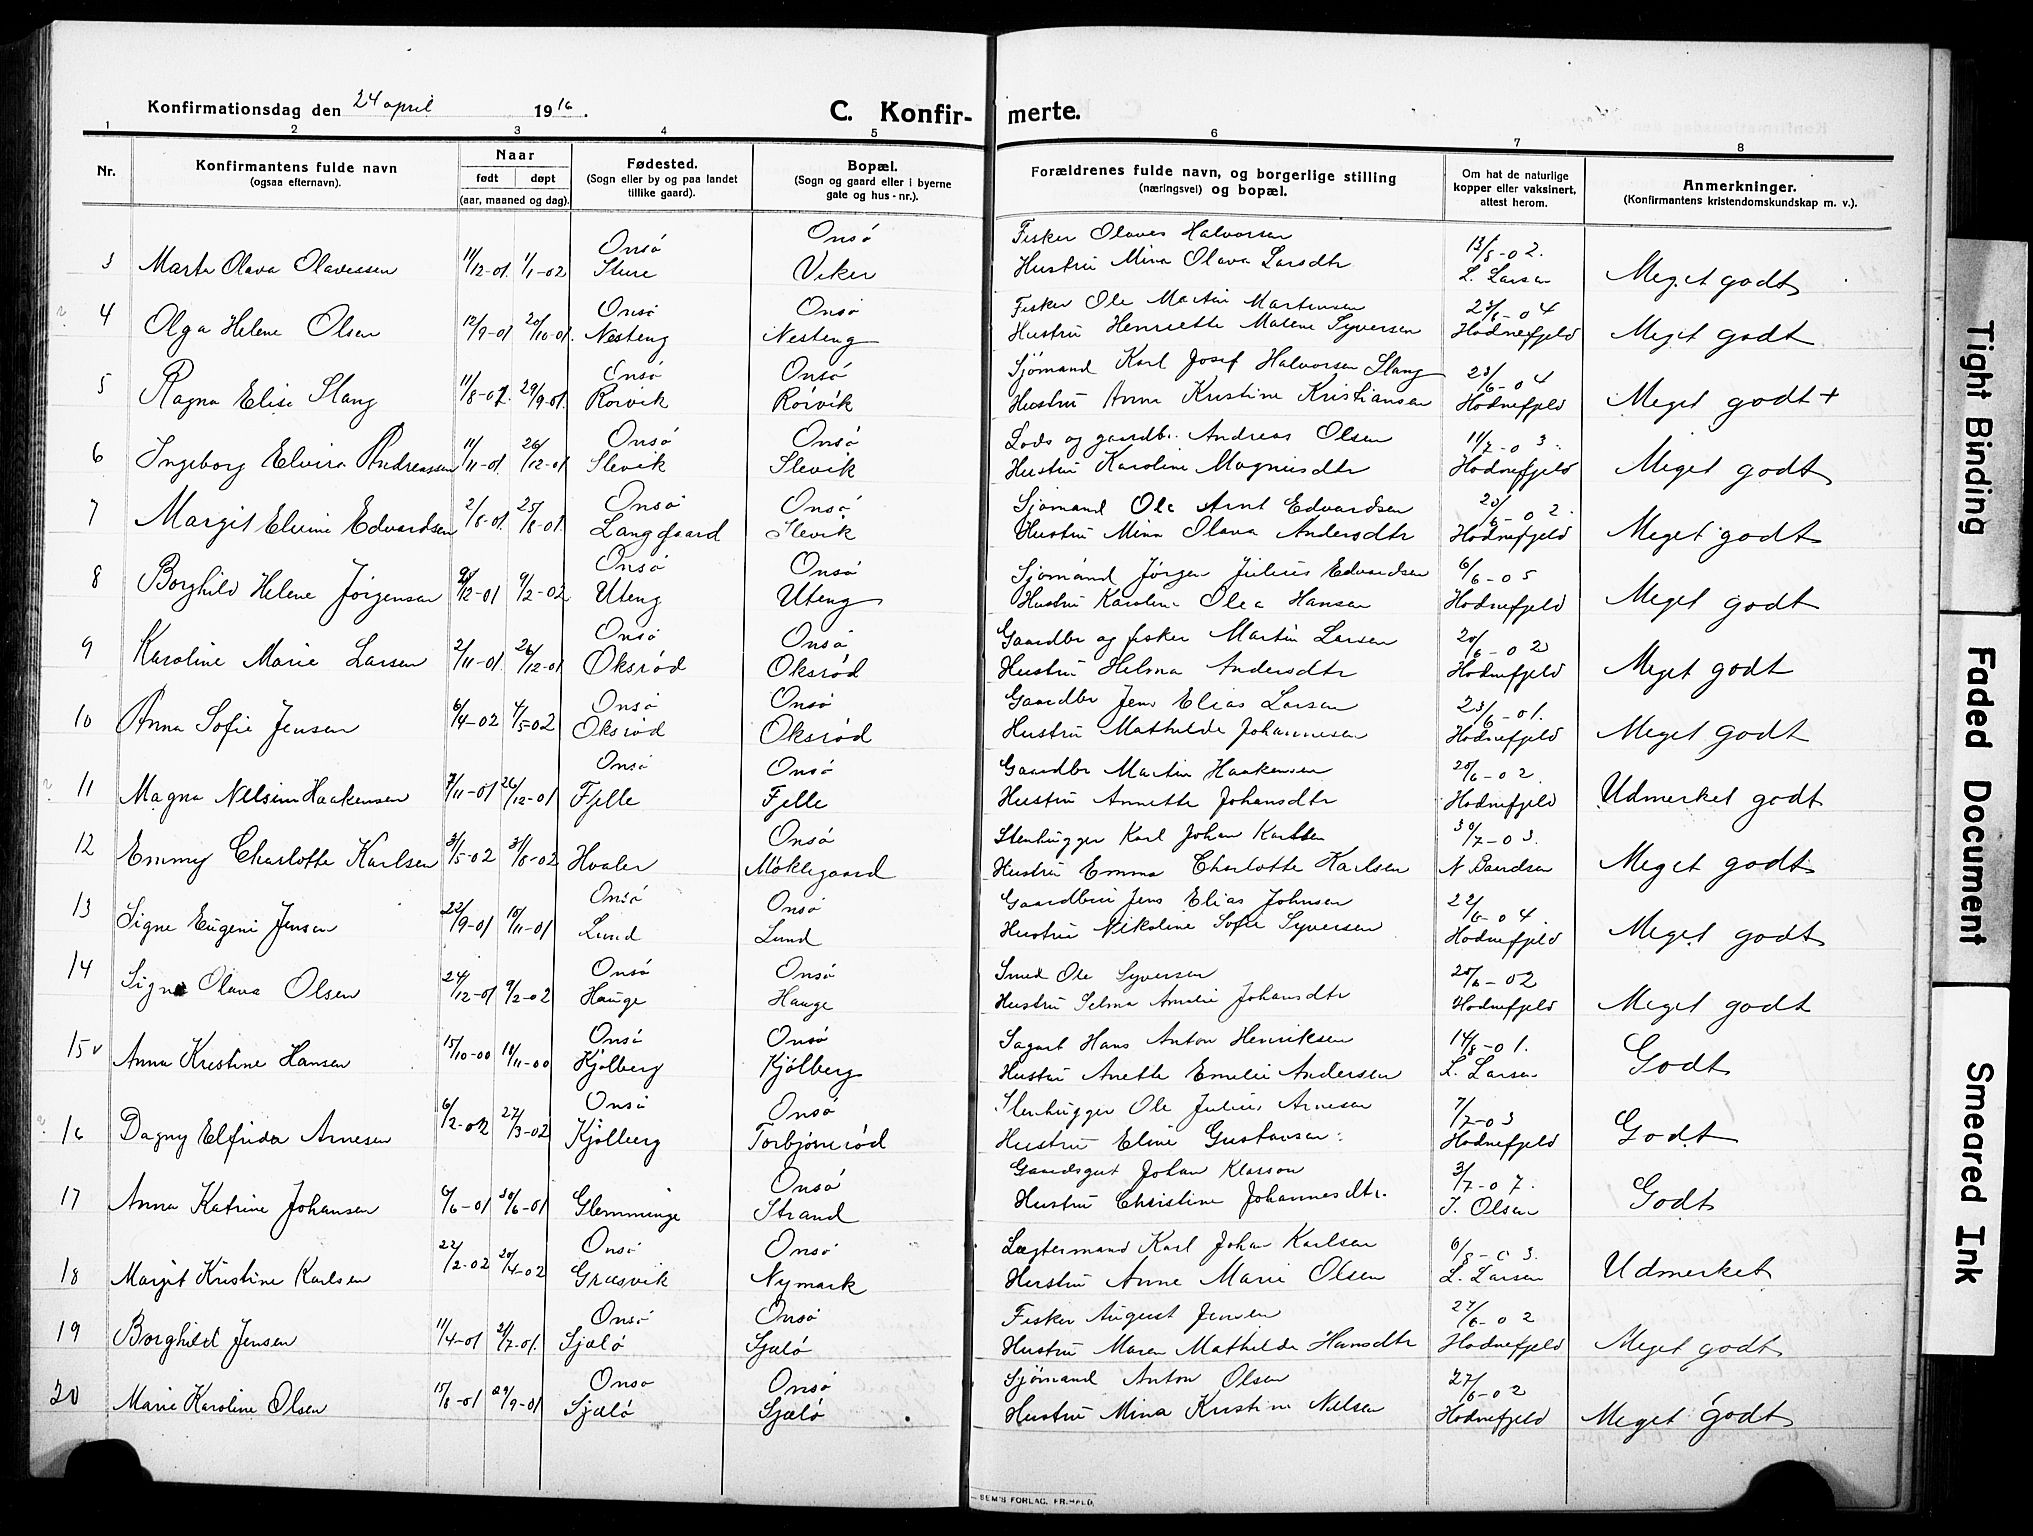 Konfirmationsdag den 24 april 1916. C. Konfirmerte.
1 2 3 4 5 6 7 8
Nr. Konfirmantens fulde navn (ogsaa efternavn). Naar født døpt (aar, maaned og dag). Fødested. (Sogn eller by og paa landet tillike gaard). Bopæl. (Sogn og gaard eller i byerne gate og hus-nr.). Forældrenes fulde navn, og borgerlige stilling (næringsvei) og bopæl. Om hat de naturlige kopper eller vaksinert, attest herom. Anmerkninger. (Konfirmantens kristendomskundskap m. v.).
Onsö Onsö Fisker Olaves Halvorsen 13/8-02.
3 Marta Olava Olavessen 11/12-01. 1/1-02 Sture Viker Hustru Mina Olava Larsdtr L. Larsen Meget godt
Onsö Onsö Fisker Ole Martin Martinsen 27/6-04
4 Olga Helene Olsen 12/9-01 20/10-01. Nesteng Nesteng Hustru Henriette Malene Syversen Hodnefjeld Meget godt
Onsö Onsö Sjömand Karl Josef Halvorsen Slang 23/6-04
5 Ragna Elise Slang 11/8-01. 29/9-01. Rörvik Rörvik Hustru Anne Kristine Kristiansen Hodnefjeld Meget godt +
Onsö Onsö Lods og gaardbr. Andreas Olsen 11/7-03.
6 Ingeborg Elvira Andreassen 11/11-01. 26/12-01 Slevik Slevik Hustru Karoline Magnusdtr Hodnefjeld Meget godt
Onsö Onsö Sjömand Ole Arnt Edvardsen 20/6-02.
7 Margit Elvine Edvardsen 2/8-01. 25/8-01. Langgaard Slevik Hustru Mina Olava Andersdtr Hodnefjeld Meget godt
Onsö Onsö Sjömand Jörgen Julius Edvardsen 6/6-05
8 Borghild Helene Jørgensen /12-01 9/2-02 Uteng Uteng Hustru Karoline Olea Hansen Hodnefjeld Meget godt
Onsö Onsö Gaardbr og fisker Martin Larsen 20/6-02
9 Karoline Marie Larsen 2/11-01. 26/12-01 Oksröd Oksröd Hustru Helma Andersdtr Hodnefjeld Meget godt
Onsö Onsö Gaardbr Jens Elias Larsen 23/6-01.
10 Anna Sofie Jensen 6/4-02 4/5-02 Oksröd Oksröd Hustru Mathilde Johannesen Hodnefjeld Meget godt
Onsö Onsö Gaardbr Martin Haakensen 20/6-02.
11 Magna Nilsine Haakensen 7/11-01 26/12-01 Fjelle Fjelle Hustru Annette Johansdtr Hodnefjeld Udmerket godt
Onsö Stenhugger Karl Johan Karlsen 30/7-03.
12 Emmy Charlotte Karlsen 3/5-02 31/8-02 Hvaler Møklegaard Hustru Emma Charlotte Karlsen N Meget godt
Onsö Onsö Gaardbru Jens Elias Johnsen 22/6-04.
13 Signe Eugeni Jensen 22/9-01 10/11-01 Lund Lund Hustru Nikoline Sofie Syversen Hodnefjeld Meget godt
Onsö Onsö Smed Ole Syversen 20/6-02
14 Signe Olava Olsen 24/12-01 9/2-02 Hauge Hauge Hustru Selma Amalie Johansdtr Hodnefjeld Meget godt
Onsö Onsö Sagarb Hans Anton Henriksen 14/8-01.
15 v Anna Kristine Hansen 15/10-00 18/11-00 Kjölberg Kjölberg Hustru Anette Emelie Andersen L. Larsen Godt
Onsö Onsö Stenhugger Ole Julius Arnesen 7/7-03
16 Dagny Elfrida Arnesen 6/2-02 27/3-02 Kjölberg Torbjörnröd Hustru Eline Gustavsen. Hodnefjeld Godt
Onsö Gaardsgut Johan Klasson 3/7-07.
17 Anna Katrine Johansen 6/6-01 30/6-01 Glemminge Strand Hustru Christine Johannesdtr. J. Olsen Godt
Onsö Onsö Lægtermand Karl Johan Karlsen 6/8-03.
18 Margit Kristine Karlsen 22/2-02 20/4-02 Græsvik Nymark Hustru Anne Marie Olsen L. Larsen Udmerket
Onsö Onsö Fisker August Jensen 27/6-02
19 Borghild Jensen 11/4-01 21/7-01. Sjælö Sjælö Hustru Maren Mathilde Hansdtr Hodnefjeld Meget godt
Onsö Onsö Sjömand Anton Olsen 27/6-02
20 Marie Karoline Olsen 15/8-01 29/9-01 Sjælö Sjælö Hustru Mina Kristine Nilsen Hodnefjeld Meget godt
SEM'S FORLAG, FR.HALD.
Tight Binding
Faded Document
Smeared Ink